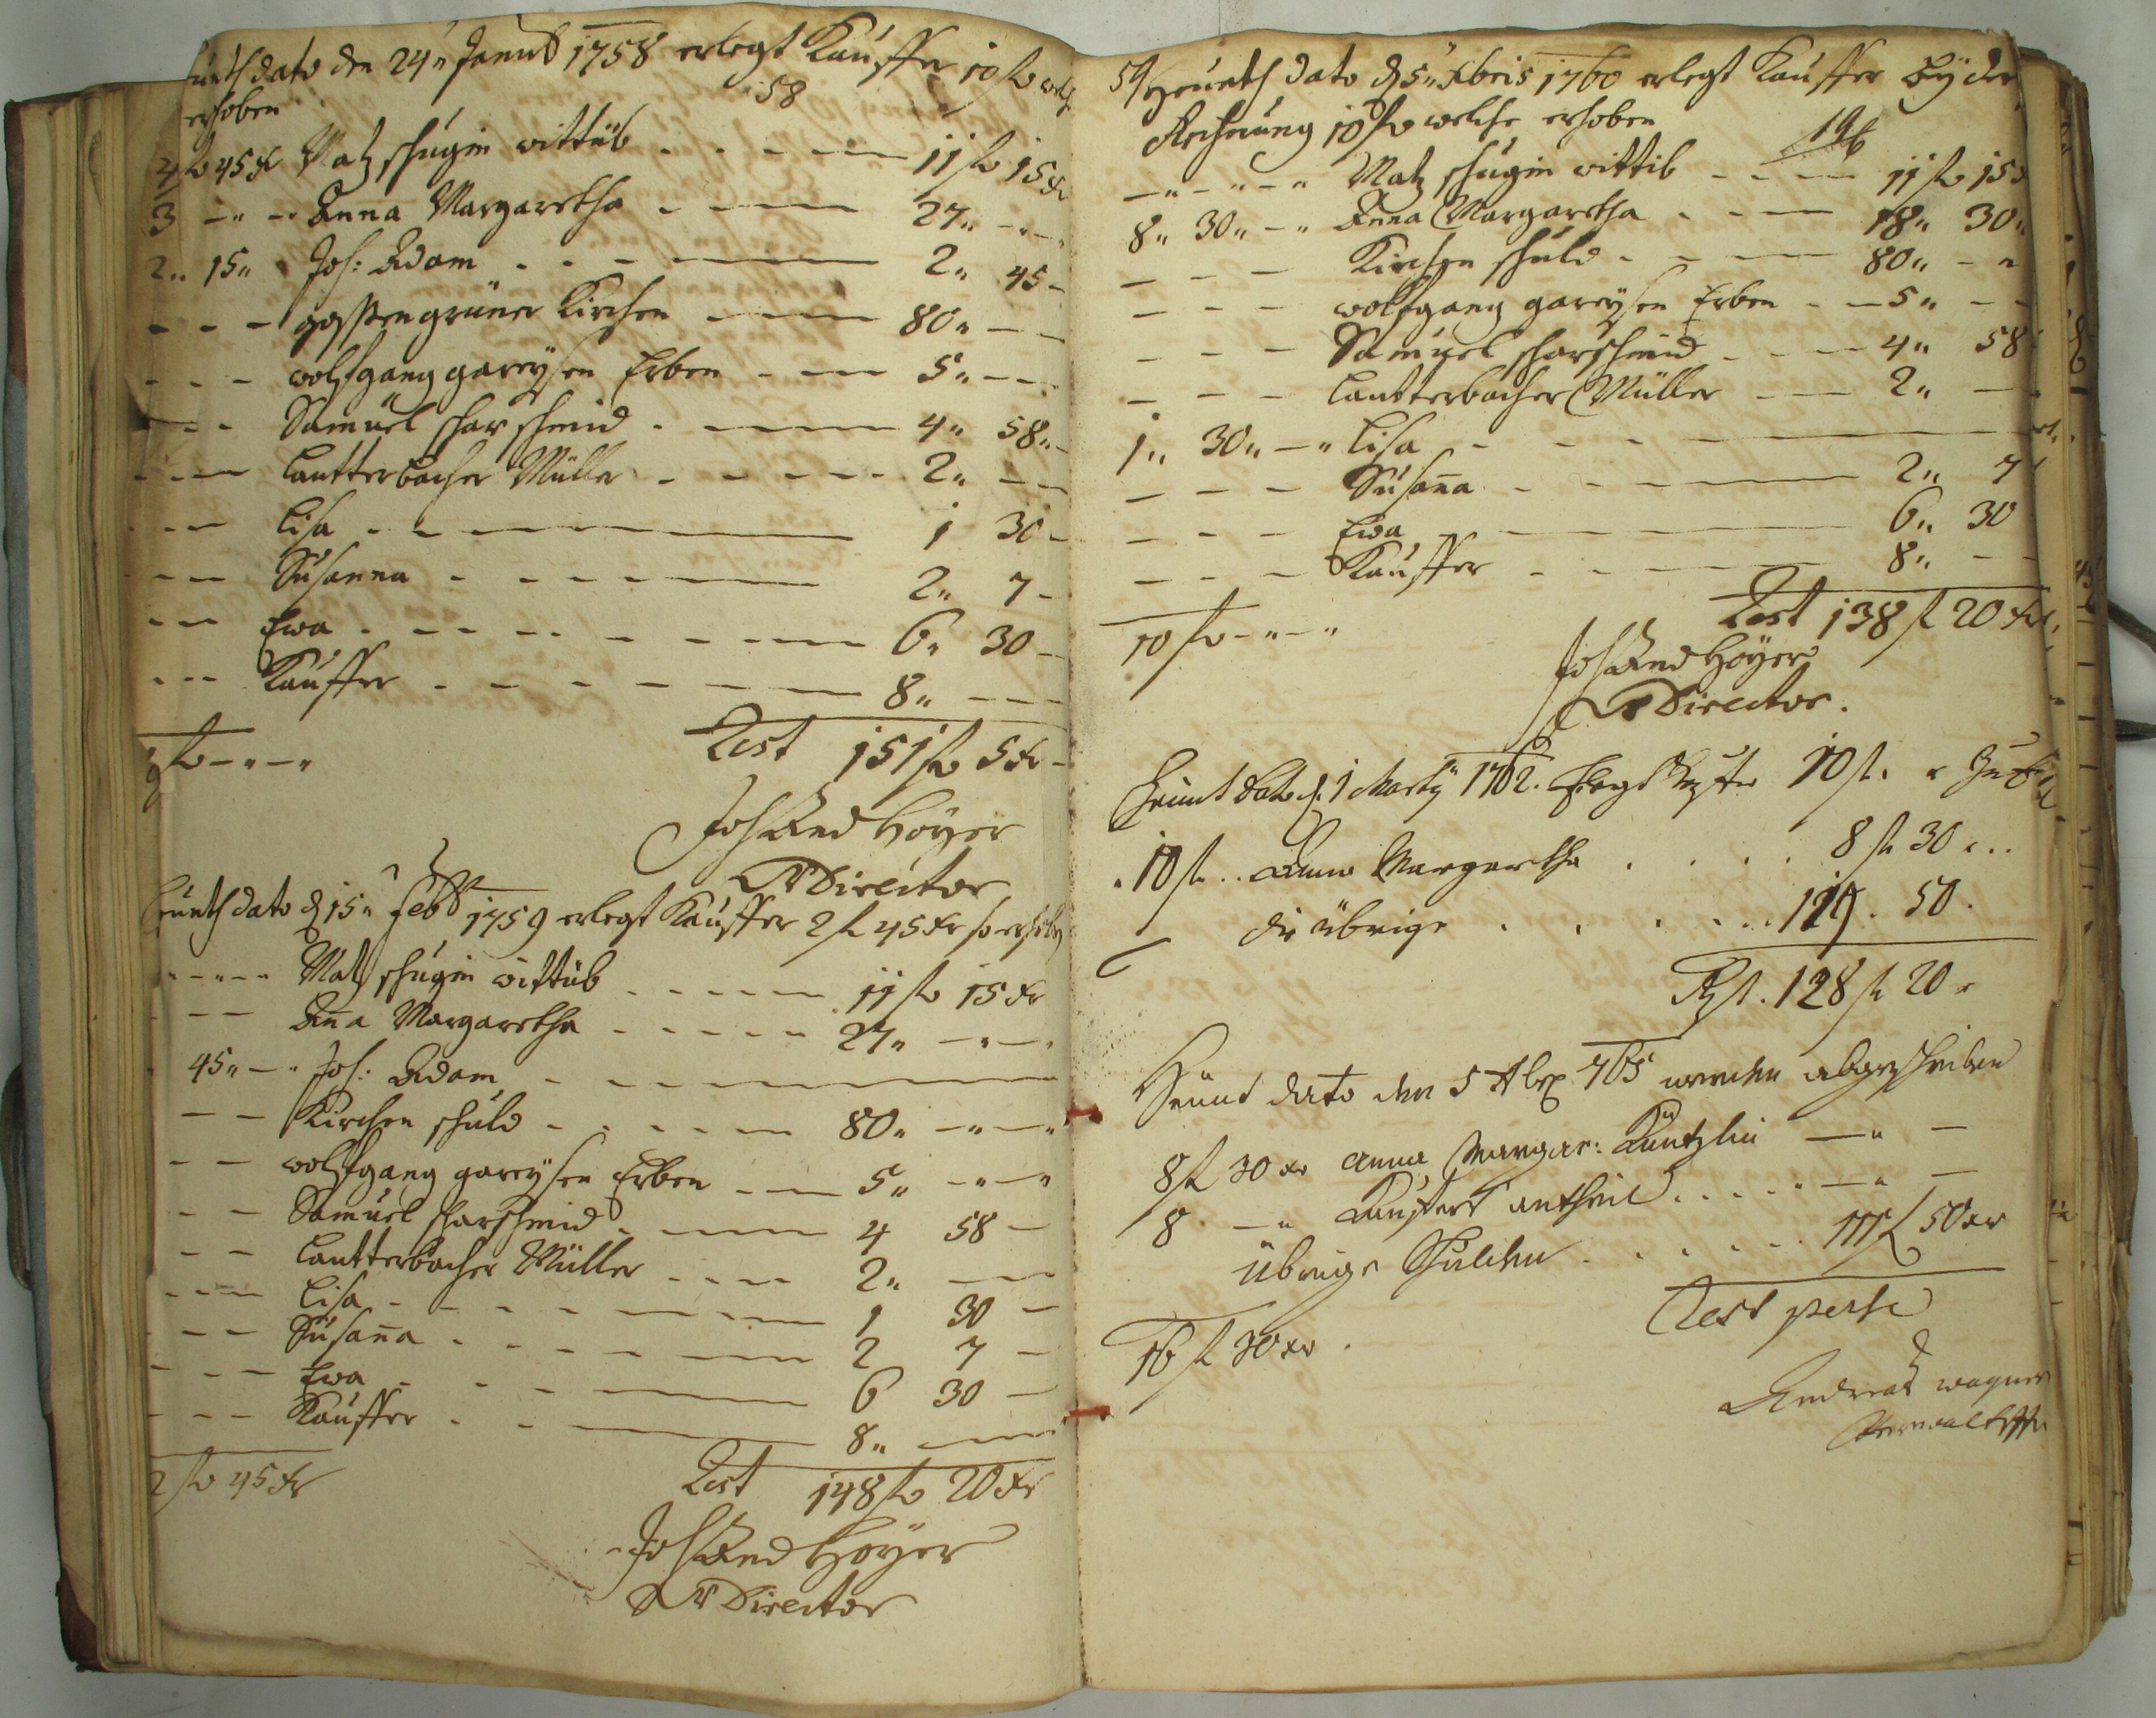 dato den 24" Januar 1758 erlegt Kauffer 10 f welche
58
erhoben
4 f 45 xr Matz schugin wittüb - - - 11 f 15 xr
3 -"- Anna Margaretha - - - 27" -"-
2" 15" Joh: Adam - - - 2" 45 -
- - - goßengrüner Kirchen - - - 80" - -
- - - wolfgang gareysen Erben - - - 5" - -
- - - Samuel scharschmid - - - 4" 58" -
- - - Lautterbacher Müller - - - 2" - -
- - - Lisa - - - 1 30 -
- - - Susanna - - - 2" 7 -
- - - Ewa - - - 6" 30 -
- - - Kauffer - - - 8" - -
f -"-"
Rest 151 f 5 xr -
Joh And Höyer
Director
Heunth dato d 15" Feb 1759 erlegt Kauffer 2 f 45 xr so erhebt
- - - Matz schugin wittüb - - - 11 f 15 xr
- - - Anna Margaretha - - - 27" -"-
45" -" Joh: Adam - - -
- - Kirchen schuld - - - 80" -"-"
- - wolfgang gareysen Erben - - - 5" -"-"
- - Samuel scharschmid - - - 4 58 -
- - Lautterbacher Müller - - - 2" - -
- - - Lisa - - - 1 30 -
- - - Susanna - - - 2 7 -
- - - Ewa - - - 6 30 -
- - - Kauffer - - - 8" - -
2 f 45 xr
Rest 148 f 20 xr
Joh And Höyer
Director
59 Heunth dato d 5" Xbris 1760 erlegt Kauffer bey der
Rechnung 10 f welche erhoben
-"-"-" Matz schugin wittib - - - 11 f 15
8" 30" -" Anna Margaretha - - - 18" 30"
- - - Kirchen schuld - - - 80" - "
- - - wolfgang gareysen Erben - - 5" - -
- - - Samuel scharschmid - - - 4" 58
- - - Lautterbacher Müller - - - 2" -
1" 30" -" Lisa - - -
- - - Susanna - - - 2" 7
- - - Ewa - - - 6" 30
- - - Kauffer - - - 8" - -
10 f -"-"
Rest 138 f 20 xr
Joh And Höyer
Director.
Heunt dato d. 1 Marty 1762. Erlegt 10 f.
10 f. Anna Margaretha . . . . 8 f 30
die übrige . . . . . 119. 50.
Rest. 128 f 20
Heunt dato den 5 765 werden abgeschrieben
8 f 30 xr Anna Margar: Küntzlin -" -
8 -" Kaufers antheil . . . . -" -
übrige Schulden . . . . . 111 f 50 xr
16 f 30 xr.
Rest perse
Andreas Wagner